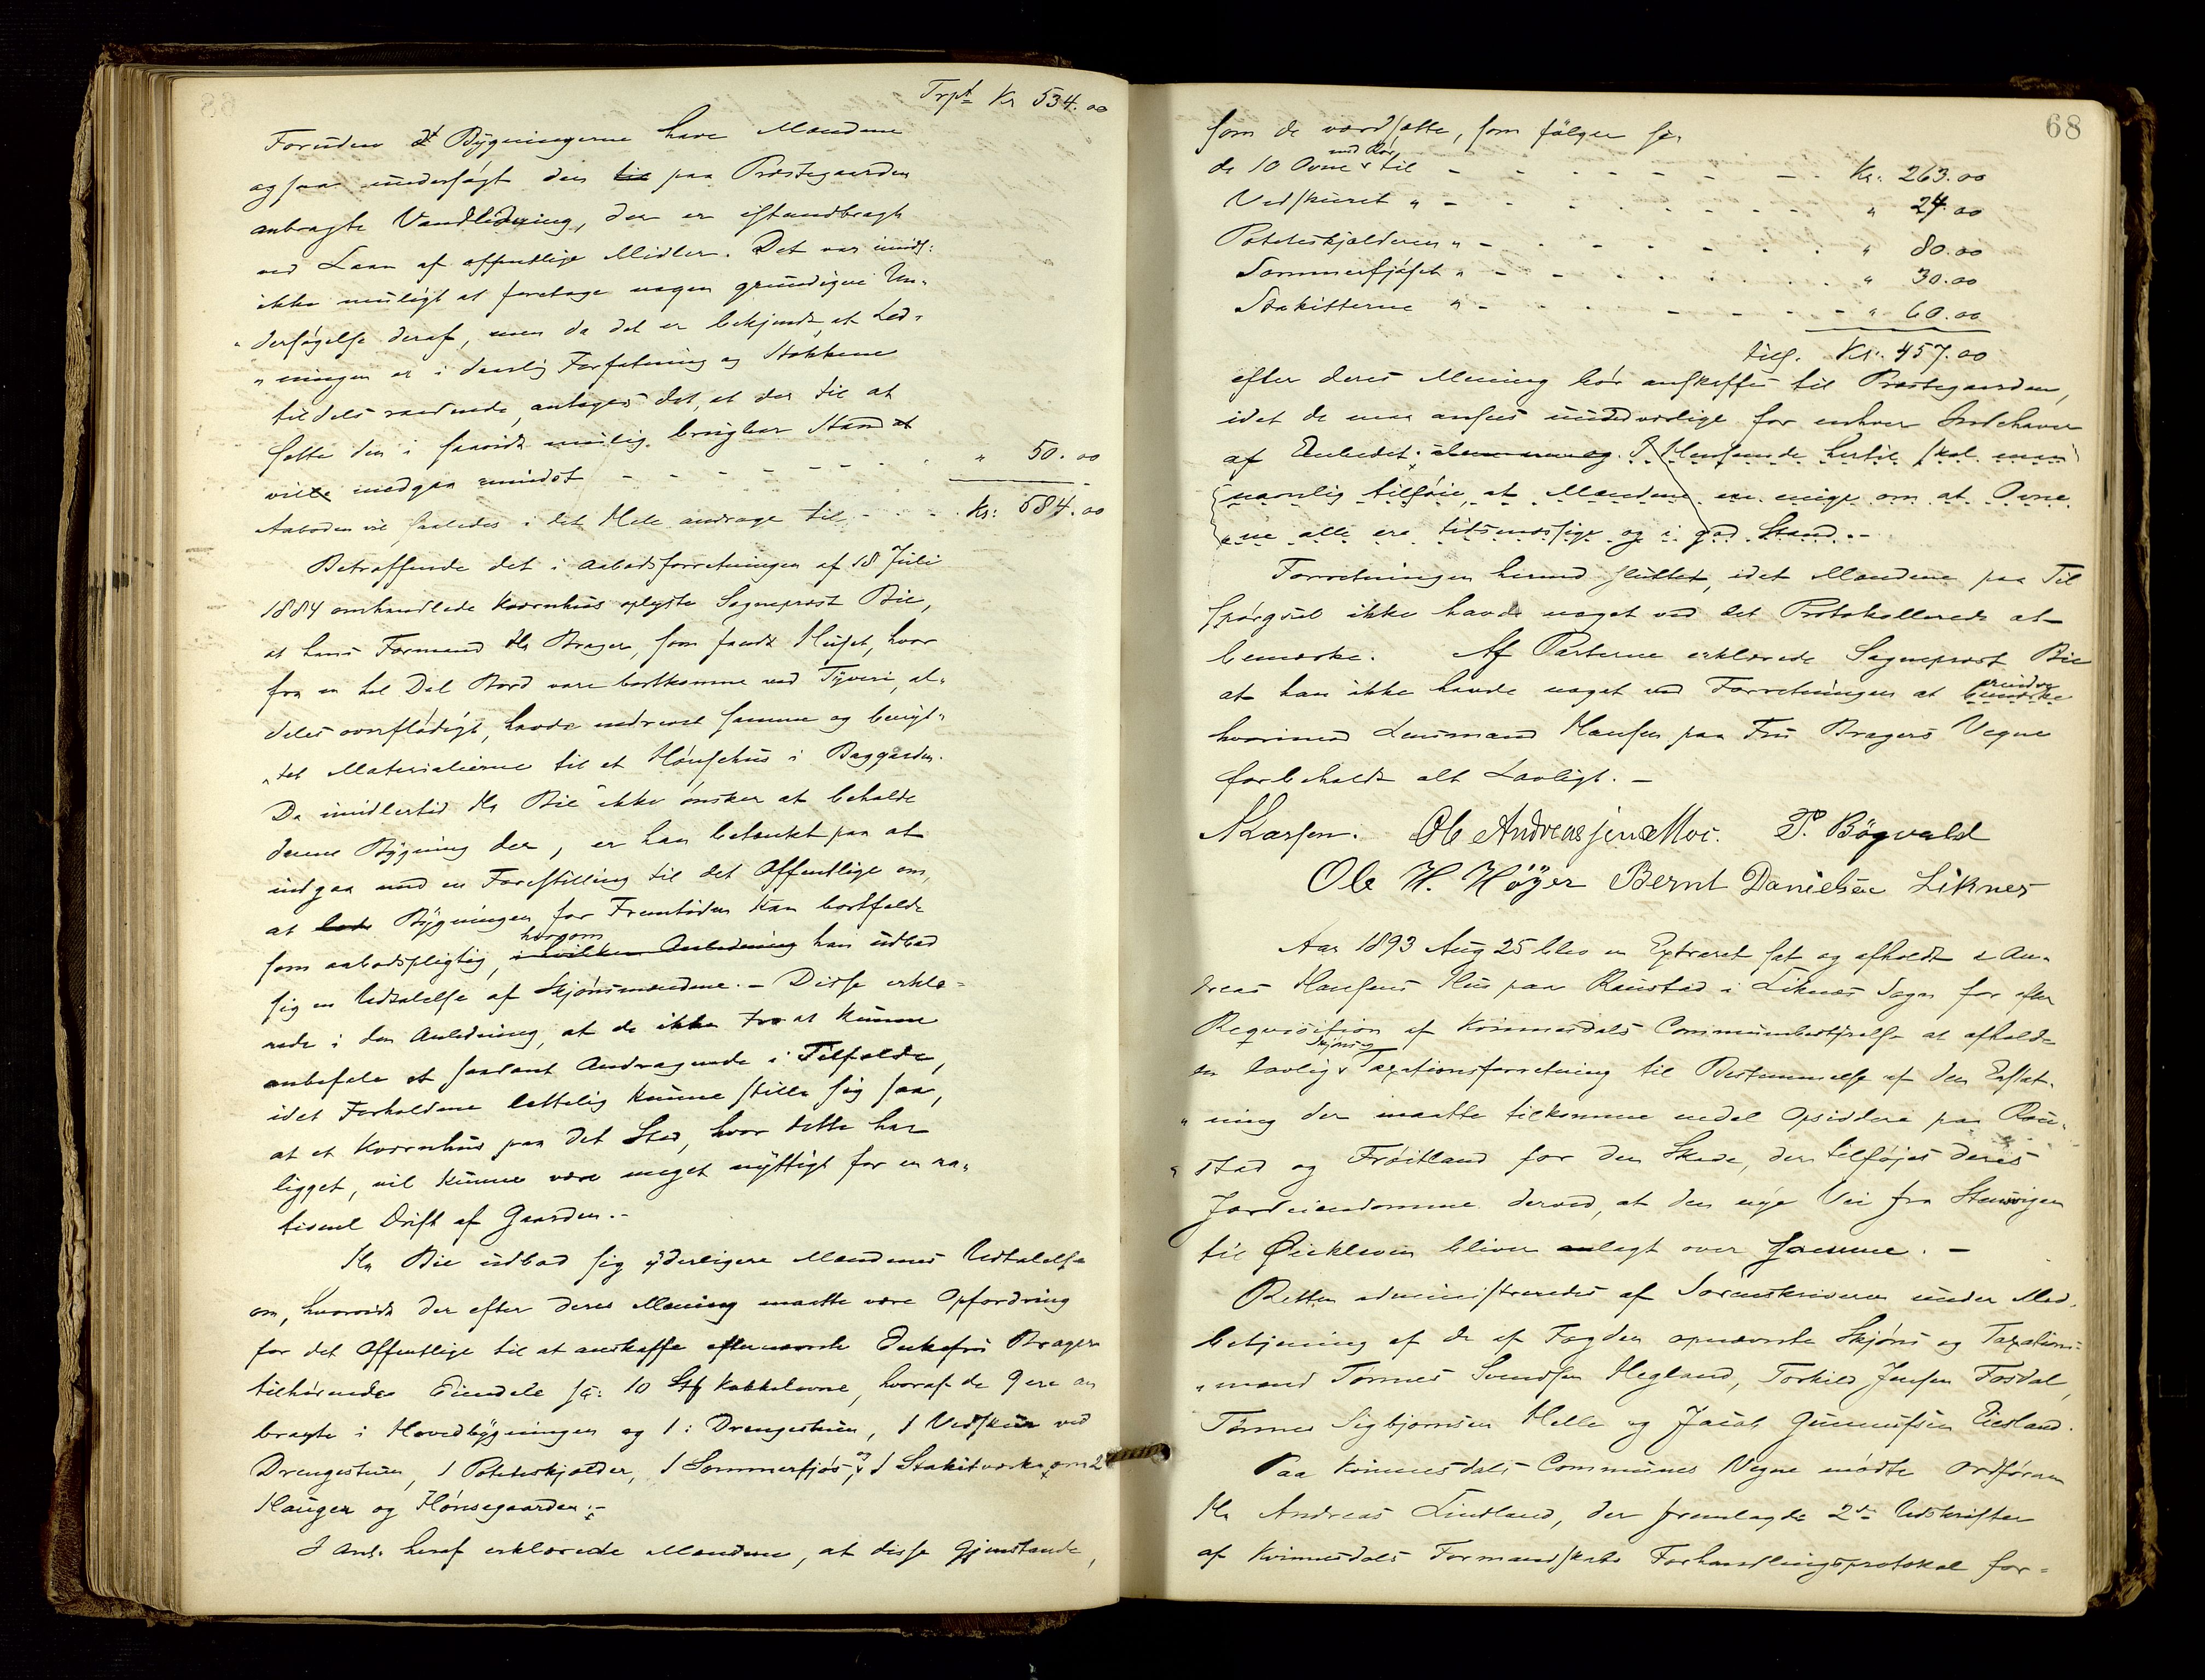 Trpt Kr 534.00
Foruden dt Bygningerne have Mændene
ogsaa undersøgt den til paa Præstegaarden
anbragte Vandledning, der er istandbragt
ved Laan af offentlige Midler. Det var imidl:
ikke muligt at foretage nogen grundigere Un-
"dersøgelse deraf, men da det er bekjendt, at Led-
"ningen er i daarlig Forfatning og Stokkene
tildels raadnede, antages det, at der til at
sætte den i saavidt mulig brugbar Stand at
ville medgaa mindst - - - - - - - " 50.00
Aaboden vil saaledes i det Hele andrage til - - - Kr: 584.00
Betræffende det i Aabodsforretningen af 18 Juli
1884 omhandlede Kværnhus oplyste Sogneprest Bie,
at hans Formand Hr Brager, som fandt Huset, hvor
fra en hel Del Bord vare bortkomne ved Tyveri, al-
deles overflødigt, havde nedrevet samme og benyt-
"tet Materialierne til et Hønsehus i Baggaarden.
Da imidlertid Hr Bie ikke ønsker at beholde
denne Bygning der, er han betænkt paa at
indgaa med en Forestilling til det Offentlige om,
at lade Bygningen for Fremtiden kan bortfalde
som aabodspligtig, i hvilken Anledning hvorom han udbad
sig en Udtalelse af Skjønsmændene. - Disse erklæ-
rede i den Anledning, at de ikke tror at kunne
anbefale et saadant Andragende i Tilfælde,
idet Forholdene lettelig kunne stille sig saa,
at et Kværnhus paa det Sted, hvor dette har
ligget, vil kunne være meget nyttigt for en ra-
tionel Drift af Gaarden. -
Hr Bie udbad sig yderligere Mændenes Udtalelse
om, hvorvidt der efter deres Mening maatte være Opfordring
for det Offentlige til at anskaffe efternævnte Enkefru Brager
tilhørende Eiendele sc: 10 Stk Kakkelovne, hvoraf de 9 ere an
bragte i Hovedbygningen og 1 i Drengestuen, 1 Vedskur ved
Drengestuen, 1 Poteteskjælder, 1 Sommerfjøs, og 1 Stakitværk om 2
Hauger og Hønsegaarden: -
I Anl. heraf erklærede Mændene, at disse Gjenstande,
68
som de værdsætte, som følger sc.
de 10 Ovne med Rør til - - - - - - - Kr. 263.00
Vedskuret " - - - - - - - " 24.00
Poteteskjælderen " - - - - - - - " 80.00
Sommerfjøset " - - - - - - - " 30.00
Stakitterne " - - - - - - - " 60.00
tils. Kr. 457.00
efter deres Mening bør anskaffes til Præstegaarden,
idet de maa ansees unødværlige for enhver Indehaver
af Embedet. I Henseende hertil skal man
nævnlig tilføie, at Mændene ere enige om at Ovne
"ne alle ere tidsmæssige og i god Stand. -
Forretningen hermed sluttet, idet Mændene paa Til
spørgsel ikke havde noget ved det Protokollerede at
bemærke. Af Parterne erklærede Sogneprest Bie
at han ikke havde noget ved Forretningen at bemærke erindre
hvorimod Lensmand Hansen paa Fru Bragers Vegne
forbeholdt alt Lovligt. -
Larsen. Ole Andreassen Moi. P. Bøgvald
Ole H. Høyer Bernt Danielsen Liknes
Aar 1893 Aug 25 blev en Extraret sat og afholdt i An-
dreas Hansens Hus paa Raustad i Liknes Sogn for efter
Requisition af Kvinnesdals Communebestyrelse at afholde
en lovlig Skjøns og Taxationsforretning til Bestemmelse af den Erstat-
"ning der maatte tilkomme endel Opsiddere paa Rau-
"stad og Frøitland for den Skade, der tilføjes deres
Jordeiendomme derved, at den nye Vei fra Stensvigen
til Øiekleven bliver anlagt over samme. -
Retten administreredes af Sorenskriveren under Med-
betjening af de af Fogden opnævnte Skjøns og Taxations-
"mænd Tønnes Svendsen Hegland, Torkild Jensen Fosdal,
Tønnes Sigbjørnsen Helle og Jacob Gunnufsen Eiesland.
Paa Kvinnesdals Communes Vegne mødte Ordføreren
Hr Andreas Lindland, der fremlagde 2de Udskrifter
af Kvinnesdals Formandskabs Forhandlingsprotokol for-